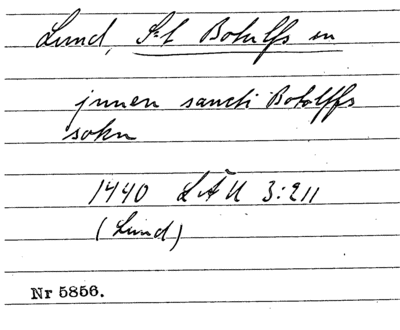 Lund, S:t Botulfs sn
jnnen sancti Botolffs
sokn
1440 LÄU 3:211
(Lund)
Nr 5856.